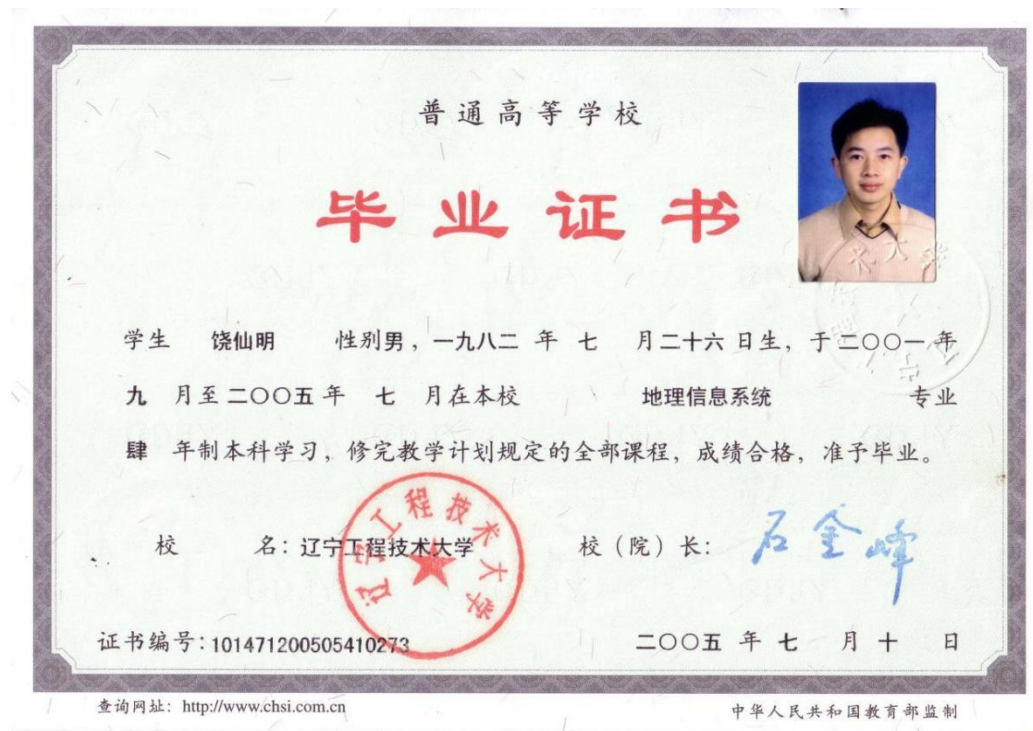 普通高等学校
毕业证书
学生 饶仙明 性别男，一九八二 年 七 月二十六 日生，于二〇〇一年
九 月至二〇〇五年 七 月在本校 地理信息系统 专业
肆 年制本科学习，修完教学计划规定的全部课程，成绩合格，准予毕业。
校 名：辽宁工程技术大学 校（院）长：石金峰
辽宁工程技术大学
证书编号：101471200505410273 二〇〇五 年 七 月 十 日
查询网址：http://www.chsi.com.cn 中华人民共和国教育部监制